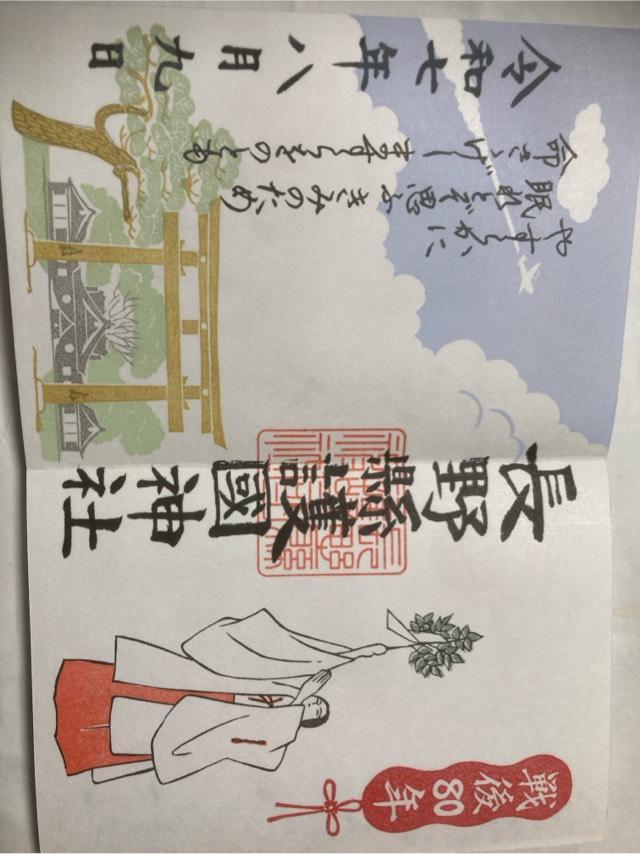 戦後80年
長野縣護國神社
やすらかに
眠れとぞ思ふきみのため
命さゝげしますらをのとも
令和七年八月九日